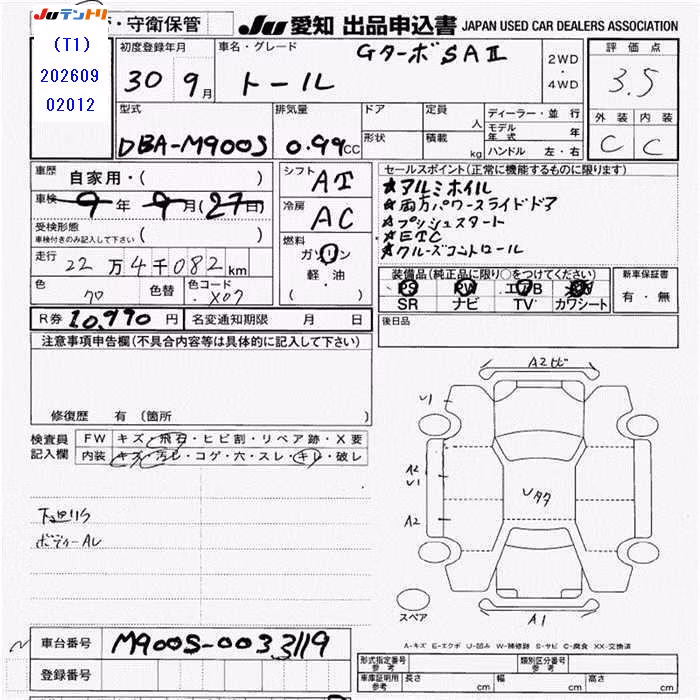 JUテントリ
(T1)
202609
02012
・守衛保管
JU 愛知 出品申込書 JAPAN USED CAR DEALERS ASSOCIATION
初度登録年月
30 9月
車名・グレード
GターボSAⅡ
トール
2WD
・
4WD
評価点
3.5
外装 内装
C C
型式
DBA-M900S
排気量
0.99cc
ドア
形状
定員 人
積載 kg
ディーラー・並行
モデル年式 年
ハンドル 左・右
車歴 自家用・( )
車検 9年 9月(27日)
受検形態
車検付きのみ記入して下さい ( )
走行 22万4千082km
色 クロ 色替 色コード X07
シフト AT
冷房 AC
燃料
ガソリン
軽・油
(・ )
セールスポイント(正常に機能するものに限ります)
★アルミホイル
★両方パワースライドドア
★プッシュスタート
★ETC
★クルーズコントロール
装備品(純正品に限り○をつけてください)
PS PW エアB
SR ナビ TV カワシート
新車保証書
有・無
R券 10,990円 名変通知期限 月 日
後日品
注意事項申告欄(不具合内容等は具体的に記入して下さい)
修復歴 有(箇所 )
検査員
記入欄
FW キズ・飛石・ヒビ割・リペア跡・X要
内装 キズ・汚レ・コゲ・穴・スレ・キレ・破レ
下廻リサ
ボディーAL
A2ヒビ
U1
A2
U1
A2
Uタタ
A1
スペア
A-キズ E-エクボ U-凹み W-補修跡 S-サビ C-腐食 XX-交換済
車台番号 M900S-0033119
登録番号
形式指定番号
参考
類別区分番号
参考
車庫証明用
参考
長さ cm 幅 cm 高さ cm